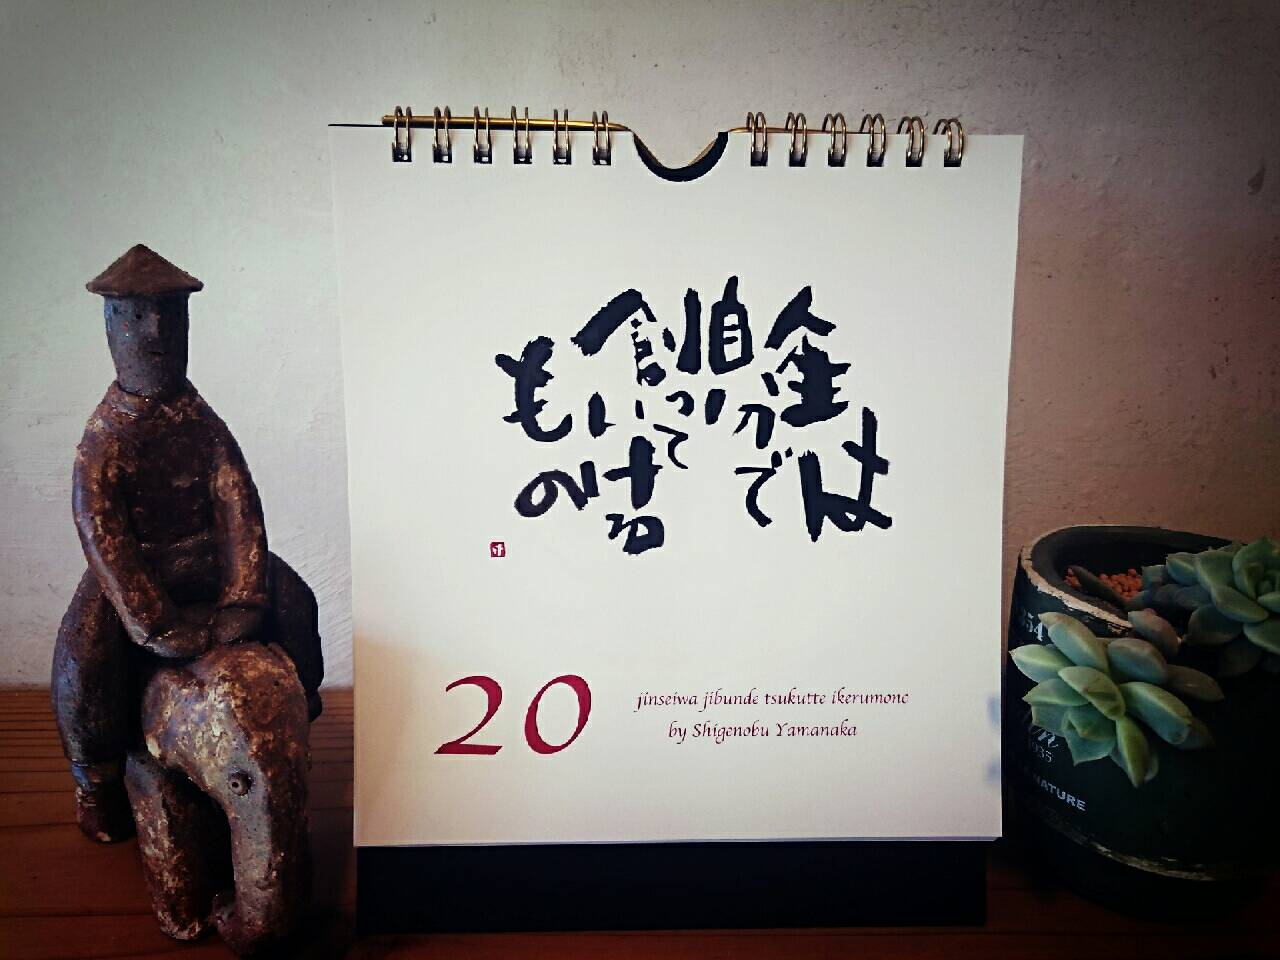 人生は
自分で
創って
いける
もの
20
jinseiwa jibunde tsukutte ikerumono
by Shigenobu Yamanaka
NATURE